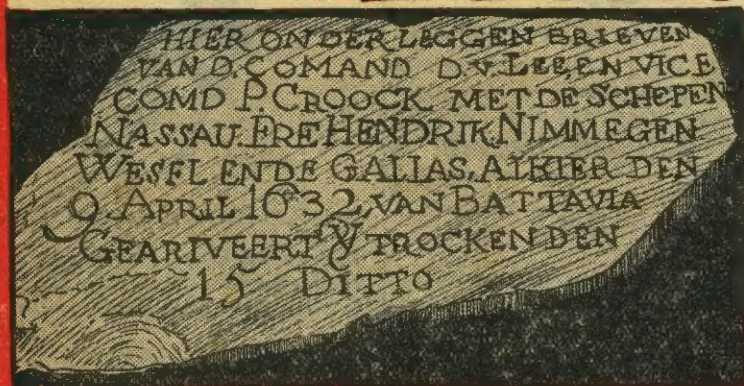 HIER ONDER LEGGEN BRIEVEN
VAN D. COMAND D. V. LEE, EN VICE
COMD P. CROOCK MET DE SCHEPEN
NASSAU. FRE HENDRIK NIMMEGEN
WESEL ENDE GALIAS. ALHIER DEN
9 APRIL 1632 VAN BATTAVIA
GEARIVEERT Y TROCKEN DEN
15 DITTO